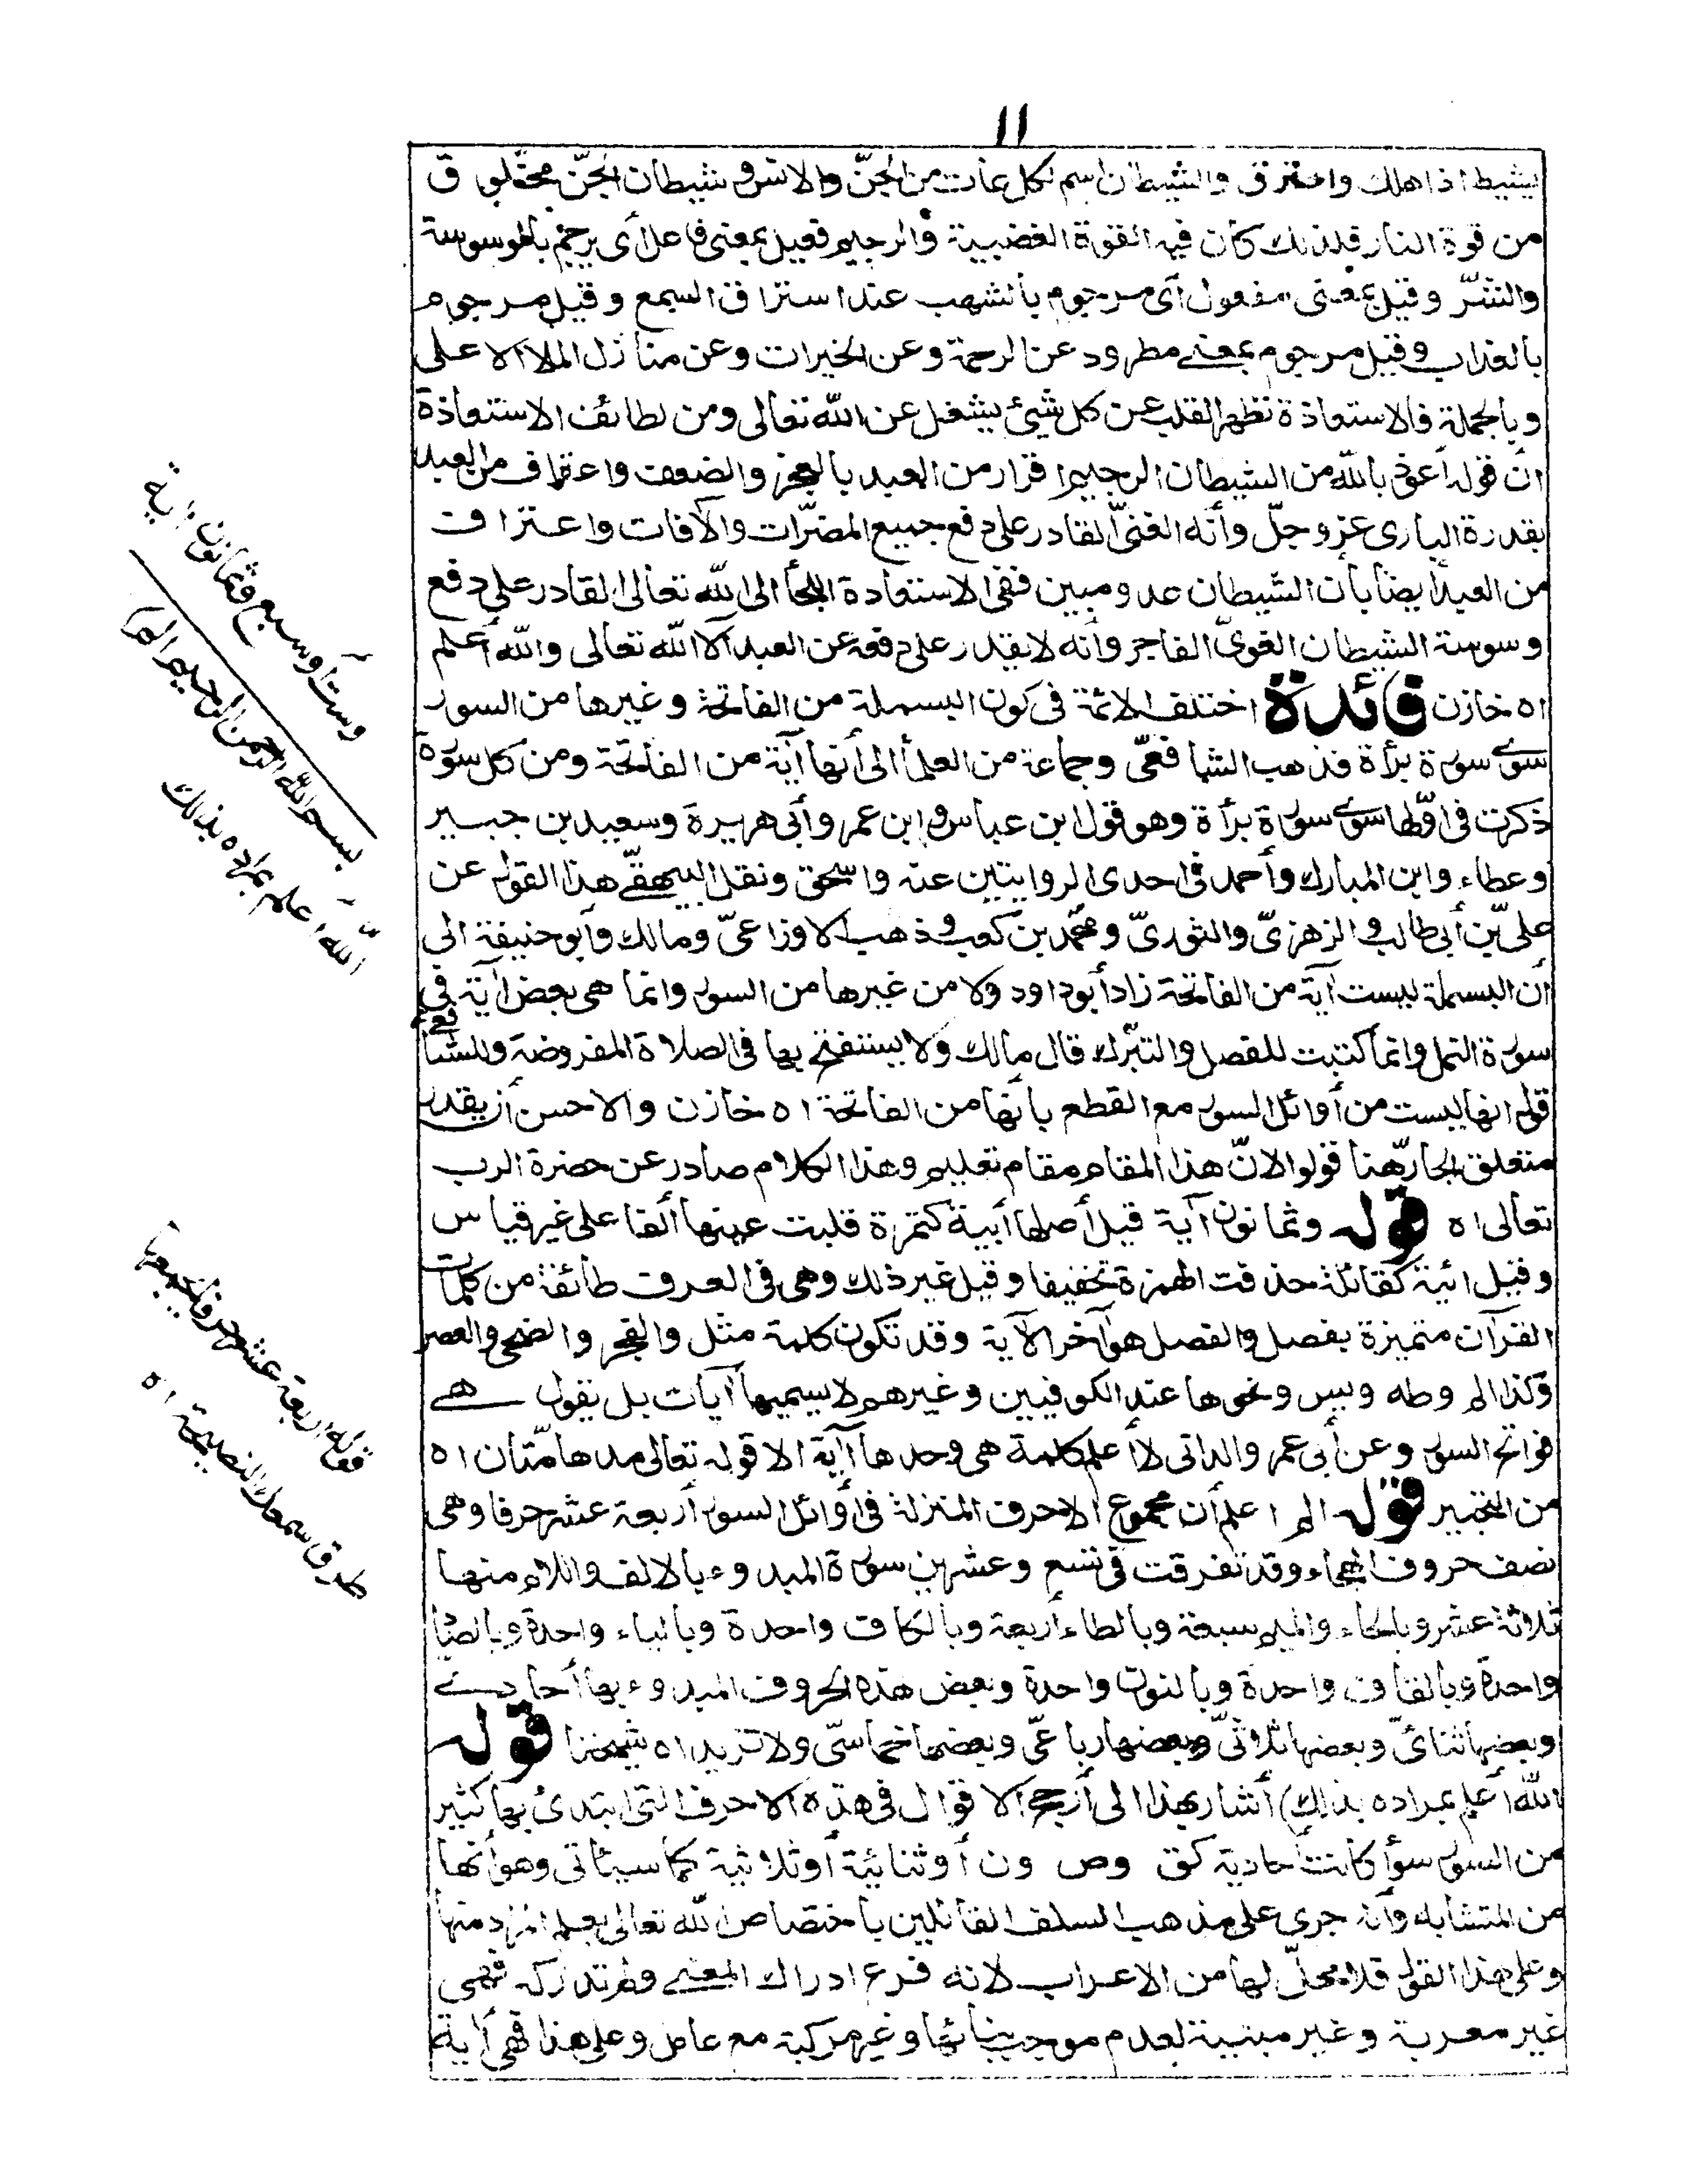 ١١
يشيط اذا هلك واحترق والشيطان اسم لكل عات من الجنّ والانس و شيطان الجنّ مخلوق
من قوة النار فلذلك كان فيه القوة الغضبية والرجيم فعيل بمعنى فاعل أى يرجم بالوسوسة
والشرّ وقيل بمعنى مفعول أى مرجوم بالشهب عند استراق السمع وقيل مرجوم
بالعذاب وقيل مرجوم بمعنى مطرود عن الرحمة وعن الخيرات وعن منازل الملا الاعلى
وبالجملة فالاستعاذة تطهر القلب عن كل شيئ يشغل عن الله تعالى ومن لطائف الاستعاذة
انّ قوله أعوذ بالله من الشيطان الرجيم اقرار من العبد بالعجز والضعف واعتراف من العبد
بقدرة البارى عز وجلّ وأنه الغنىّ القادر على دفع جميع المضرّات والآفات واعتراف
من العبد أيضا بأن الشيطان عدو مبين ففى الاستعاذة اللجأ الى الله تعالى القادر على دفع
وسوسة الشيطان الغوىّ الفاجر وأنه لا يقدر على دفعه عن العبد الا الله تعالى والله أعلم
اه خازن فائدة اختلف الائمة فى كون البسملة من الفاتحة وغيرها من السور
سوى سورة برأة فذهب الشافعىّ وجماعة من العلمأ الى أنها آية من الفاتحة ومن كل سورة
ذكرت فى اوّلها سوى سورة برأة وهو قول ابن عباس و ابن عمر وأبى هريرة وسعيد بن جبير
وعطاء وابن المبارك وأحمد فى احدى الروايتين عنه واسحق ونقل البيهقى هذا القول عن
علىّ بن أبى طالب و الزهرىّ والثورىّ ومحمّد بن كعب وذهب الاوزاعىّ ومالك وأبو حنيفة الى
أن البسملة ليست آية من الفاتحة زاد أبو داود ولا من غيرها من السور وانما هى بعض آية فى
سورة النمل وانما كتبت للفصل والتبرك قال مالك ولا يستفتح بها فى الصلاة المفروضة وللشافعى
قول انها ليست من أوائل السور مع القطع بأنها من الفاتحة اه خازن والاحسن أن يقدر
متعلق الجارّ هنا قولوا لانّ هذا المقام مقام تعليم وهذا الكلام صادر عن حضرة الرب
تعالى اه قوله وثمانون آية قيل أصلها أيية كتمرة قلبت عينها ألفا على غير قياس
وقيل ائية كقائلة حذفت الهمزة تخفيفا وقيل غير ذلك وهى فى العرف طائفة من كلمات
القرآن متميزة بفصل والفصل هو آخر الآية وقد تكون كلمة مثل والفجر والضحى والعصر
وكذا الم وطه ويس ونحوها عند الكوفيين وغيرهم لا يسميها آيات بل يقول هى
فواتح السور وعن أبى عمر والدانى لا أعلم كلمة هى وحدها آية الا قوله تعالى مدهامّتان اه
من التحبير قوله الم اعلم أن مجموع الاحرف المنزلة فى أوائل السور أربعة عشر حرفا وهى
نصف حروف الهجاء وقد تفرقت فى تسع وعشرين سورة المبدوء بالالف واللام منها
ثلاثة عشر وبالحاء والميم سبعة وبالطاء أربعة وبالكاف واحدة وبالياء واحدة وبالصاد
واحدة وبالقاف واحدة وبالنون واحدة وبعض هذه الحروف المبدوء بها أحادى
وبعضها ثنائىّ وبعضها ثلاثىّ وبعضها رباعىّ وبعضها خماسىّ ولا تزيد اه شيخنا قوله
الله أعلم بمراده بذلك) أشار بهذا الى أرجح الاقوال فى هذه الاحرف التى ابتدئ بها كثير
من السور سوأ كانت أحادية كق وص ون أو ثنائية أو ثلاثية كما سيأتى وهو أنها
من المتشابه وأنه جرى على مذهب السلف القائلين باختصاص الله تعالى بعلم المراد منها
وعلى هذا القول فلا محلّ لها من الاعراب لانه فرع ادراك المعنى ولم ندركه فهى
غير معربة وغير مبنية لعدم موجب بنائها وغير مركبة مع عامل وعلى هذا فهى أية
وست أو سبع وثمانون اية
بسم الله الرحمن الرحيم الم
الله أعلم بمراده بذلك
قوله اربعة عشر حرفا يجمعها
طرق سمعك النصيحة اه